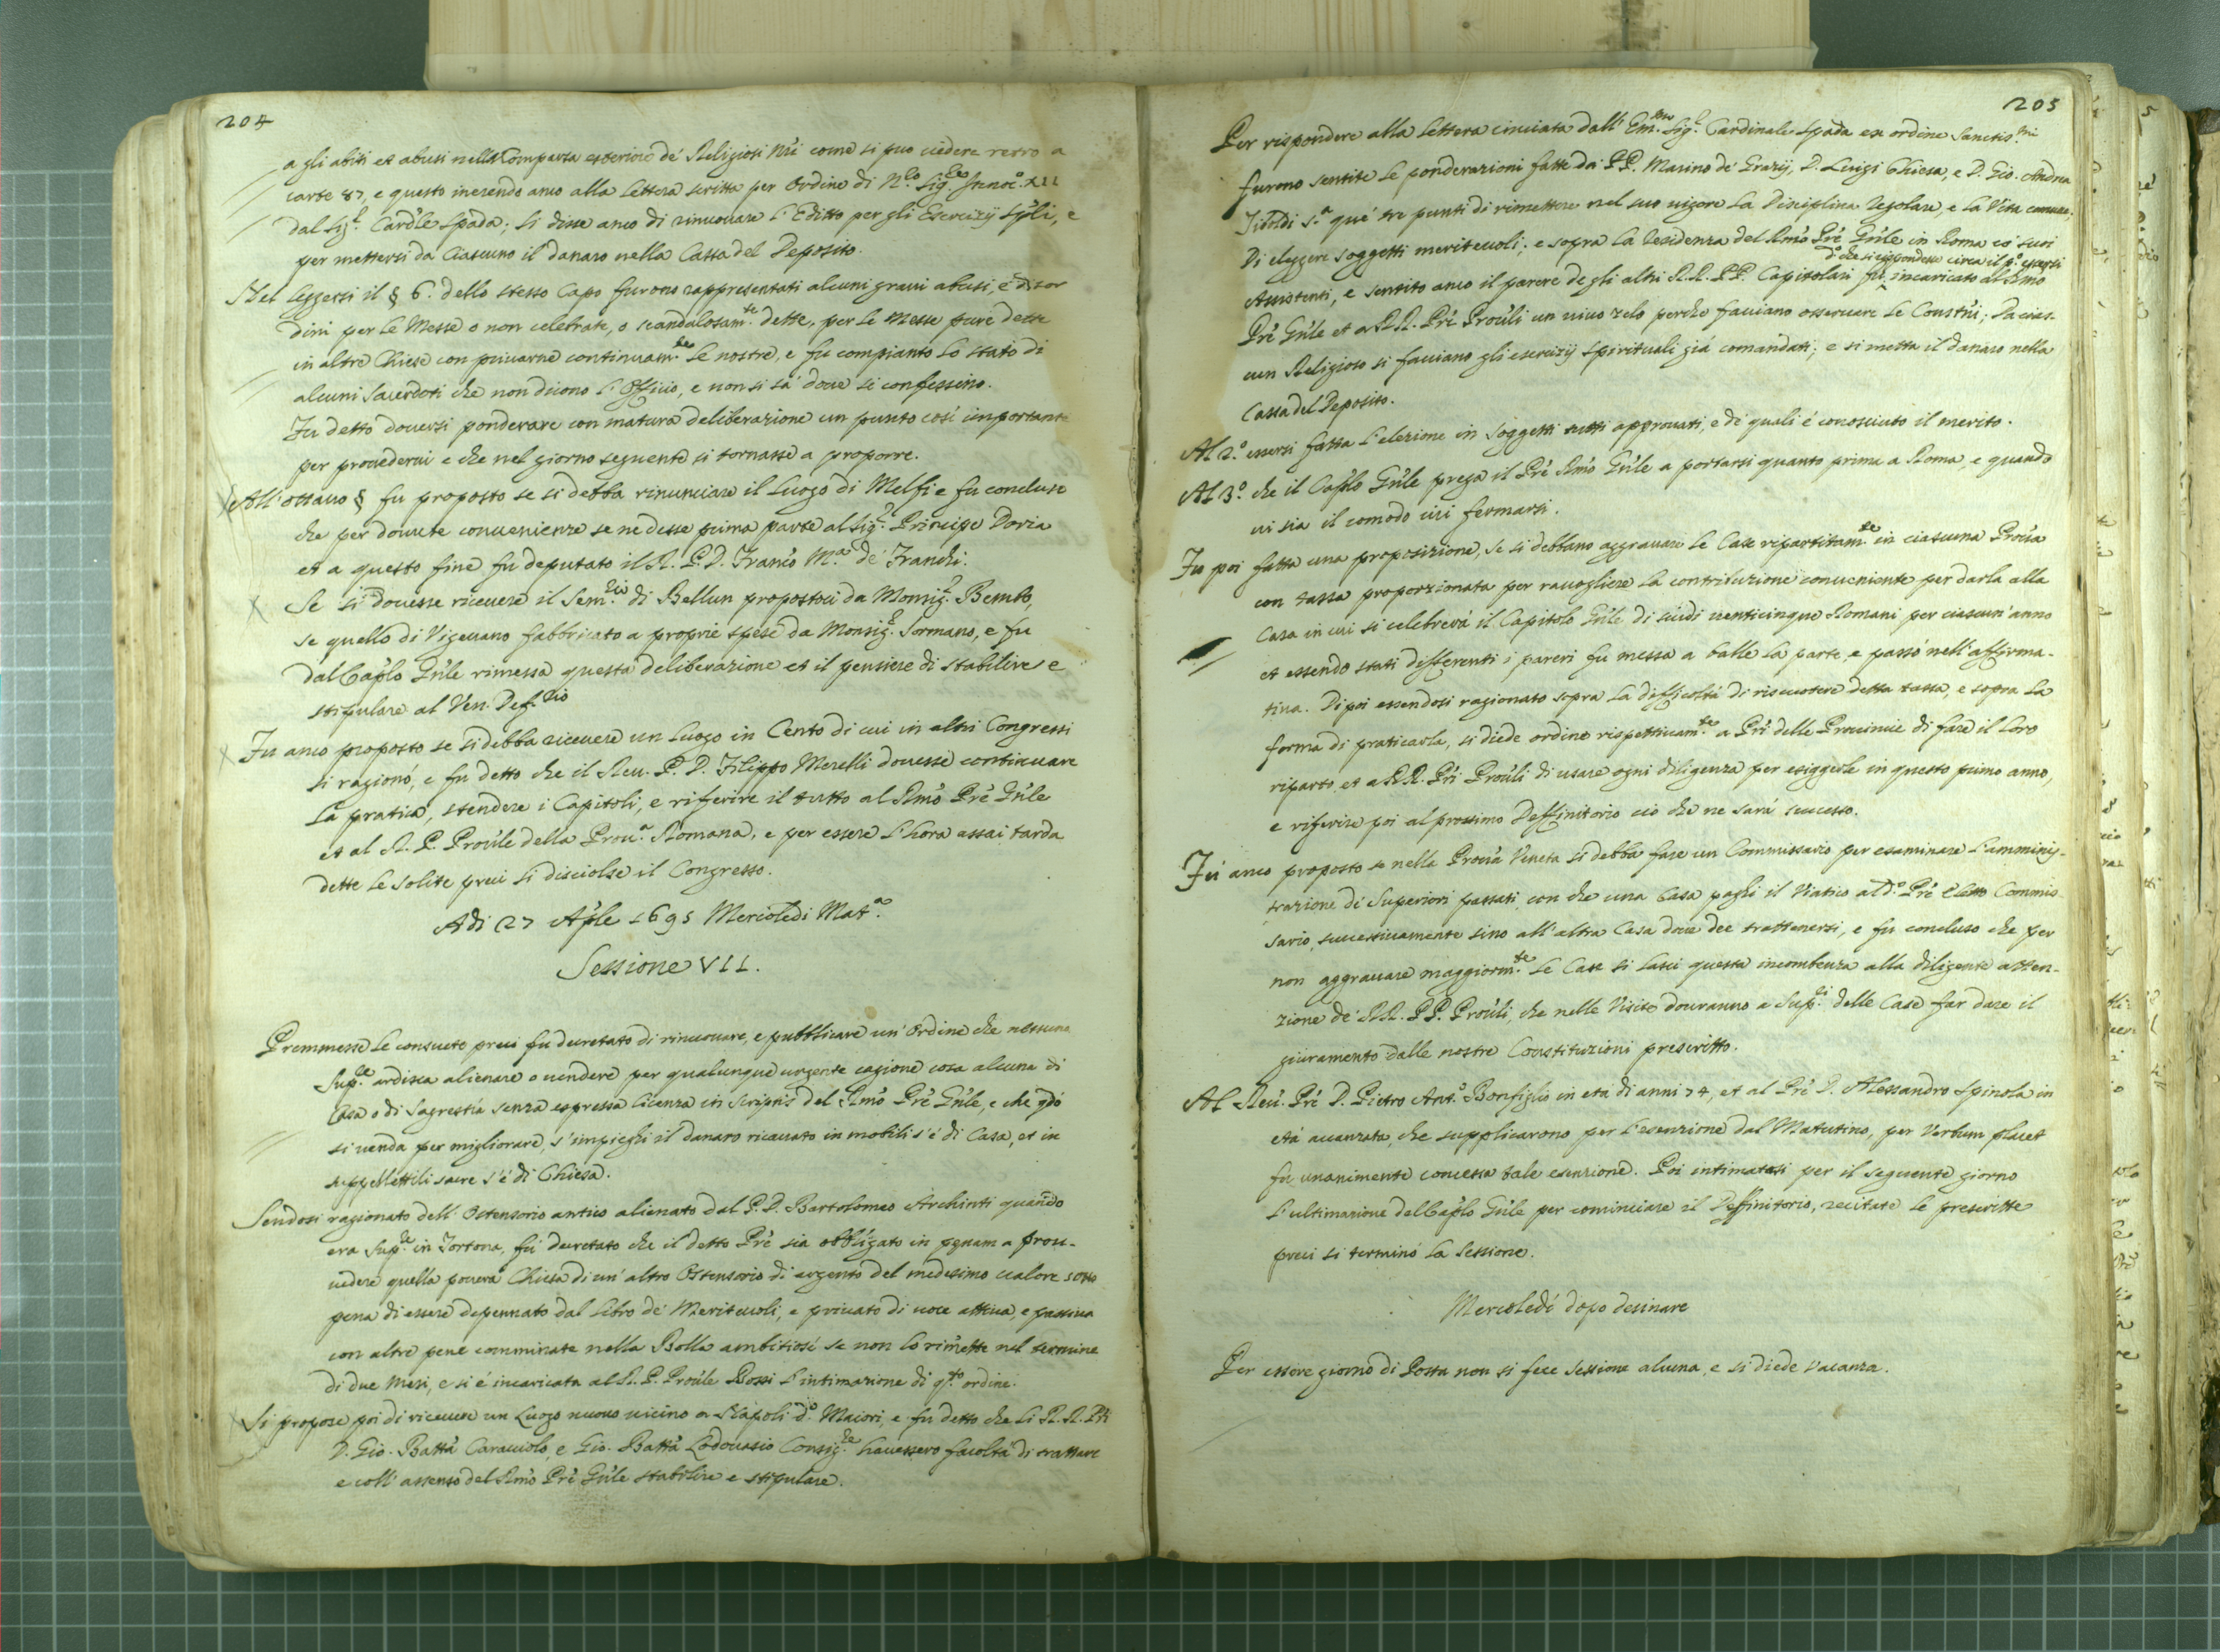 204
a gli abiti et abusi nella Comparsa esteriore de' Religiosi nri come si puo vedere retro a
carte 87, e questo inerendo anco alla lettera scritta per Ordine di N.ro Sig.re Innoc.o XII
dal Sig.r Cardle Spada; Si disse anco di rinuovare l'Editto per gli Esercizij Spli, e
per mettersi da ciascuno il danaro nella Cassa del Deposito.
Nel leggersi il § 6. dello stesso Capo furono rappresentati alcuni gravi abusi, e disor
dini per le Messe o non celebrate, o scandalosam.te dette, per le Messe pure dette
in altre Chiese con privarne continuam.te le nostre, e fu compianto lo stato di
alcuni Sacerdoti che non dicono l'Officio, e non si sà dove si confessino.
Fu detto doversi ponderare con matura deliberazione un punto così importante
per provedervi e che nel giorno seguente si tornasse a proporre.
All'ottavo § fu proposto se si debba rinunciare il luogo di Melfi e fu concluso
che per dovute convenienze se ne desse prima parte al Sig.r Principe Doria
et a questo fine fù deputato il R. P. D. Franco M.a de' Franchi.
Se si dovesse ricevere il Sem.rio di Bellun propostoci da Monsig.r Bembo,
se quello di Vigevano fabbricato a proprie spese da Monsig.r Sormano, e fu
dal Caplo Gnle rimessa questa deliberazione et il pensiere di stabilire e
stipulare al Ven. Def.rio
Fu anco proposto se si debba ricevere un luogo in Cento di cui in altri Congressi
si ragionò, e fu detto che il Rev. P. D. Filippo Merelli dovesse continuare
la pratica, stendere i Capitoli, e riferire il tutto al Rmo Pre Gnle
et al R. P. Proule della Prov.a Romana, e per essere l'hora assai tarda
dette le solite preci si disciolse il Congresso.
Adi 27 Aple 1695 Mercoledi Mat.a
Sessione VII.
Premmesse le consuete preci fu decretato di rinuovare, e pubblicare un'Ordine che nessuno
Sup.re ardisca alienare o vendere per qualunque urgente cagione cosa alcuna di
Casa o di Sagrestia senza espressa licenza in scriptis del Rmo Pre Gnle, e che qdo
si venda per migliorare, s'impieghi il danaro ricavato in mobili s'è di Casa, et in
suppellettili sacre s'è di Chiesa.
Sendosi ragionato dell'Ostensorio antico alienato dal P. D. Bartolomeo Archinti quando
era Sup.re in Tortona, fù decretato che il detto Pre sia obbligato in pgnam a prov-
vedere quella povera Chiesa di un'altro Ostensorio di argento del medesimo valore sotto
pena di essere depennato dal libro de' Meritevoli, e privato di voce attiva, e passiva
con altre pene comminate nella Bolla ambitiosi se non lo rimette nel termine
di due Mesi, e si è incaricata al R. P. Proule Rossi l'intimazione di q.to ordine.
Si propose poi di ricevere un Luogo nuovo vicino a Napoli d.o Maiori, e fu detto che li R. R. PP.
D. Gio. Batta Caracciolo, e Gio. Batta Lodovasio Consig.re havessero facoltà di trattare
e coll'assenso del Rmo Pre Gnle stabilire e stipulare.
205
Per rispondere alla lettera inviata dall'Em.mo Sig.r Cardinale Spada ex ordine Sanctis.mi
furono sentite le ponderazioni fatte da' PP. Marino de' Grazij, D. Luigi Chiesa, e D. Gio. Andrea
Tiboldi s.a que' tre punti di rimettere nel suo vigore la Disciplina regolare, e la Vita comune.
Di eleggere soggetti meritevoli; e sopra la residenza del Rmo Pre Gnle in Roma co' suoi
d.o che si rispondesse circa il p.o essersi
Assistenti, e sentito anco il parere de gli altri R. R. PP. Capitolari fù incaricato al Rmo
Pre Gnle et a RR. Pri Prouli un vivo zelo perche facciano osservare le Constni; da cias-
cun Religioso si facciano gli esercizij spirituali già comandati; e si metta il danaro nella
Cassa del Deposito.
Al 2.o essersi fatta l'elezione in soggetti tutti approvati, e di quali è conosciuto il merito.
Al 3.o che il Caplo Gnle prega il Pre Rmo Gnle a portarsi quanto prima a Roma, e quando
vi sia il comodo ivi fermarsi.
Fu poi fatta una proposizione, se si debbano aggravare le Case ripartitam.te in ciascuna Provia
con tassa proporzionata per raccogliere la contribuzione conveniente per darla alla
Casa in cui si celebrerà il Capitolo Gnle di scudi venticinque Romani per ciascun'anno
et essendo stati differenti i pareri fu messa a balle la parte, e passò nell'afferma-
tiva. Di poi essendosi ragionato sopra la difficoltà di riscuotere detta tassa, e sopra la
forma di praticarla, si diede ordine rispettivam.te a Pri delle Provincie di fare il loro
riparto, et a RR. Pri Prouli di usare ogni diligenza per esiggerle in questo primo anno,
e riferire poi al prossimo Deffinitorio ciò che ne sarà successo.
Fù anco proposto se nella Provia Veneta si debba fare un Commissario per esaminare l'amminis-
trazione de' Superiori passati, con che una Casa paghi il Viatico al d.o Pre eletto Commis-
sario, successivamente sino all'altra Casa dove dee trattenersi, e fu concluso che per
non aggravare maggiorm.te le Case si lasci questa incombenza alla diligente atten-
zione de' RR. PP. Prouli, che nelle Visite dovranno a Sup.ri delle Case far dare il
giuramento dalle nostre Constituzioni prescritto.
Al Rev. Pre D. Pietro Ant.o Bonfiglio in eta di anni 74, et al Pre D. Alessandro Spinola in
età avanzata, che supplicarono per l'esenzione dal Matutino, per Verbum placet
fu unanimente concessa tale esenzione. Poi intimatasi per il seguente giorno
l'ultimazione del Caplo Gnle per cominciare il Deffinitorio, recitate le prescritte
preci si terminò la Sessione.
Mercoledì dopo desinare
Per essere giorno di Posta non si fece Sessione alcuna, e si diede vacanza.